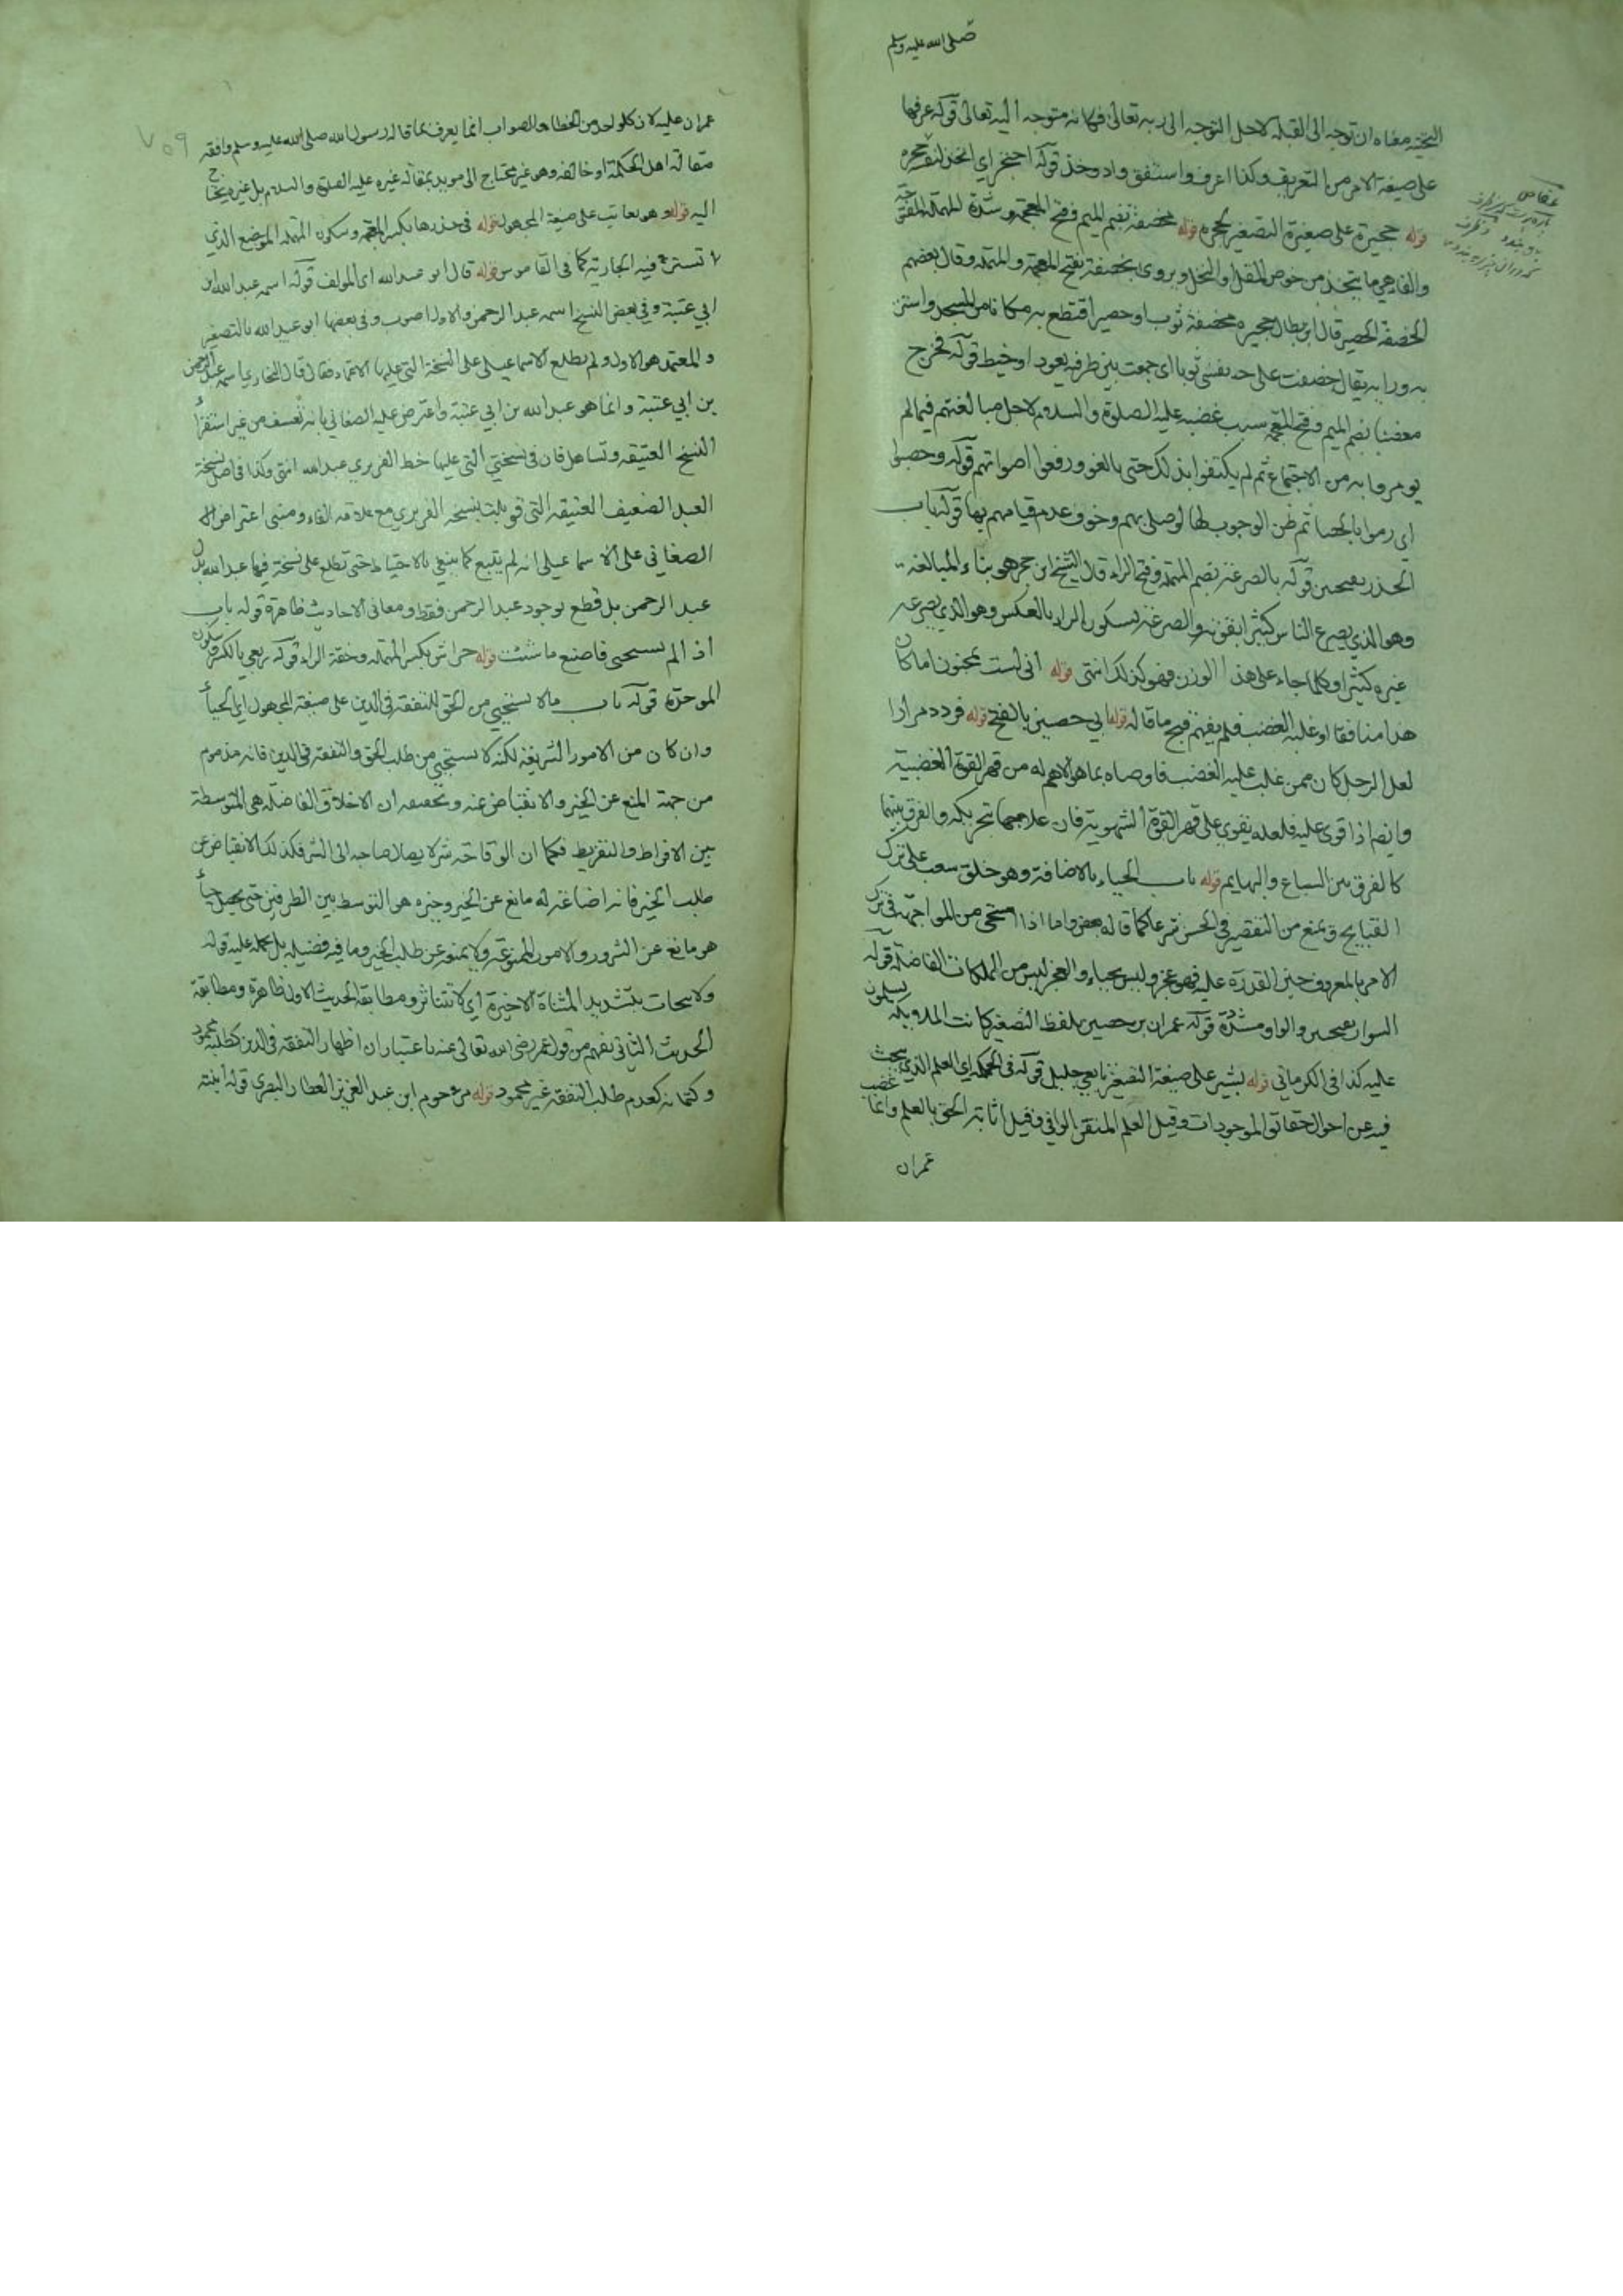 صلى الله عليه وسلم
معناه ان توجه الى القبلة لاجل التوجه الى ربه تعالى فكانه متوجه اليه تعالى قوله عرفها
على صيغة الامر من التعريف وكذا اعرف واستنفق واد وخذ قوله احتجر اي اتخذ لنفسه حجره
قوله حجيرة على صيغة التصغير لحجره قوله مخصفة بضم الميم وفتح المعجمة وشدة المهملة المفتوحة
والفاء هي ما يتخذ من خوص المقل والنخل ويروى بخصفة بفتح المعجمة والمهملة وقال بعضهم
الخصفة الحصير قال ابن بطال حجيره مخصفة ثوب او حصير اقتطع به مكانا من المسجد واستتر
به وراءه يقال خصفت على نفسي ثوبا اي جمعت بين طرفيه بعود او خيط قوله فخرج
مغضبا بضم الميم وفتح المعجمة سبب غضبه عليه الصلوة والسلام لاجل مبالغتهم فيما لم
يومروا به من الاجتماع ثم لم يكتفوا بذلك حتى بالغوا ورفعوا اصواتهم قوله وحصبوا
اي رموا بالحصباء ثم ظن الوجوب لها لو صلى بهم وخوف عدم قيامهم بها قوله باب
الحذر قوله بالصرعة بضم المهملة وفتح الراء قال الشيخ ابن حجر هو بناء المبالغة
وهو الذي يصرع الناس كثيرا بقوته والصرعة بسكون الراء بالعكس وهو الذي يصرعه
غيره كثيرا وكلما جاء على هذا الوزن فهو كذلك انتهى قوله اني لست بمجنون اما كان
هذا منافقا او غلبه الغضب فلم يفهم قبح ما قاله قوله ابي حصين بالفتح قوله فردد مرارا
لعل الرجل كان ممن غلب عليه الغضب فاوصاه بما هو الاهم له من قهر القوة الغضبية
وايضا اذا قوي عليه فلعله يقوى على قهر القوة الشهوية فان علاجها والفرق بينهما
كالفرق بين السباع والبهايم قوله باب الحياء بالاضافة وهو خلق يبعث على ترك
القبايح ويمنع من التقصير في الحسن شرعا كما قاله بعض واما اذا استحى من المواجهة في ترك
الامر بالمعروف حين القدرة عليه فهو عجز وليس بحياء والعجز ليس من الملكات الفاضلة قوله
السوار والواو مشددة قوله عمران بن حصين بلفظ التصغير كانت الملايكة يسلمون
عليه كذا في الكرماني قوله بشير على صيغة التصغير تابعي جليل قوله في الحكمة اي العلم الذي يبحث
فيه عن احوال حقائق الموجودات وقيل العلم المتقن الوافي وقيل اثابة الحق بالعلم وانما غضب
عمران
عفاص
عمران عليه لان كل واحد من الخطاء والصواب انما يعرف بما قاله رسول الله صلى الله عليه وسلم وافقه
مقالة اهل الحكمة او خالفه وهو غير محتاج الى مويد بمقالة غيره عليه الصلوة والسلام بل غيره يحتاج
اليه قوله وهو يعاتب على صيغة المجهول قوله في خدرها بكسر المعجمة وسكون المهملة الموضع الذي
تستتر فيه الجارية كما في القاموس قوله قال ابو عبد الله اي المولف قوله اسمه عبد الله ابن
ابي عتبة وفي بعض النسخ اسمه عبد الرحمن والاول اصوب وفي بعضها ابو عبيد الله بالتصغير
والمعتمد هو الاول ولم يطلع الاسماعيلي على النسخة التي عليها الاعتماد فقال قال البخاري اسمه عبد الرحمن
بن ابي عتبة وانما هو عبد الله بن ابي عتبة واعترض عليه الصغاني بانه تعسف من غير استقراء
النسخ العتيقه وتساهل فان في نسختي التي عليها خط الفربري عبد الله انتهى وكذا في اصل نسخة
العبد الضعيف العتيقه التي قوبلت بنسخه الفربري مع علامه الفاء ومبنى اعتراض
الصغاني على الاسماعيلي انه لم يتتبع كما ينبغي بالاحتياط حتى تطلع على نسخة فيها عبد الله بدل
عبد الرحمن بل قطع بوجود عبد الرحمن فقط ومعاني الاحاديث ظاهرة قوله باب
اذا لم تستحي فاصنع ما شئت قوله حراش بكسر المهملة وخفة الراء قوله ربعي بالكسر وسكون
الموحدة قوله باب مالا يستحيي من الحق للتفقة في الدين على صيغة المجهول اي الحياء
وان كان من الامور الشريفة لكنه لا يستحيي من طلب الحق والتفقه في الدين فانه مذموم
من جهة المنع عن الخير والانقباض عنه وتحقيقه ان الاخلاق الفاضلة هي المتوسطة
بين الافراط والتفريط فكما ان الوقاحة شر لا يصال صاحبه الى الشر فكذلك الانقباض عن
طلب الخير فانه اضاعة له مانع عن الخير وخيره هو التوسط بين الطرفين حتى يحصل حياء
هو مانع عن الشرور والامور الممنوعة ولا يمنعه عن طلب الخير وما فيه فضيلة بل يحمله عليه قوله
ولا يتحات بتشديد المثناة الاخيرة اي لا تتناثر ومطابقة الحديث الاول ظاهرة ومطابقة
الحديث الثاني يفهم من قول عمر رضي الله تعالى عنه باعتبار ان اظهار التفقه في الدين كطلبه محمود
وكتمانه كعدم طلب التفقه غير محمود قوله مرحوم ابن عبد العزيز العطار البصري قوله ابنته